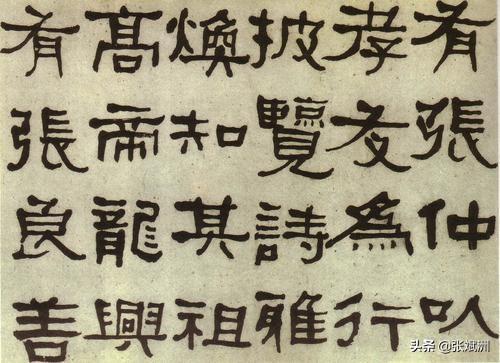 有張仲以
孝友為行
披覽詩雅
煥知其祖
高帝龍興
有張良善
头条